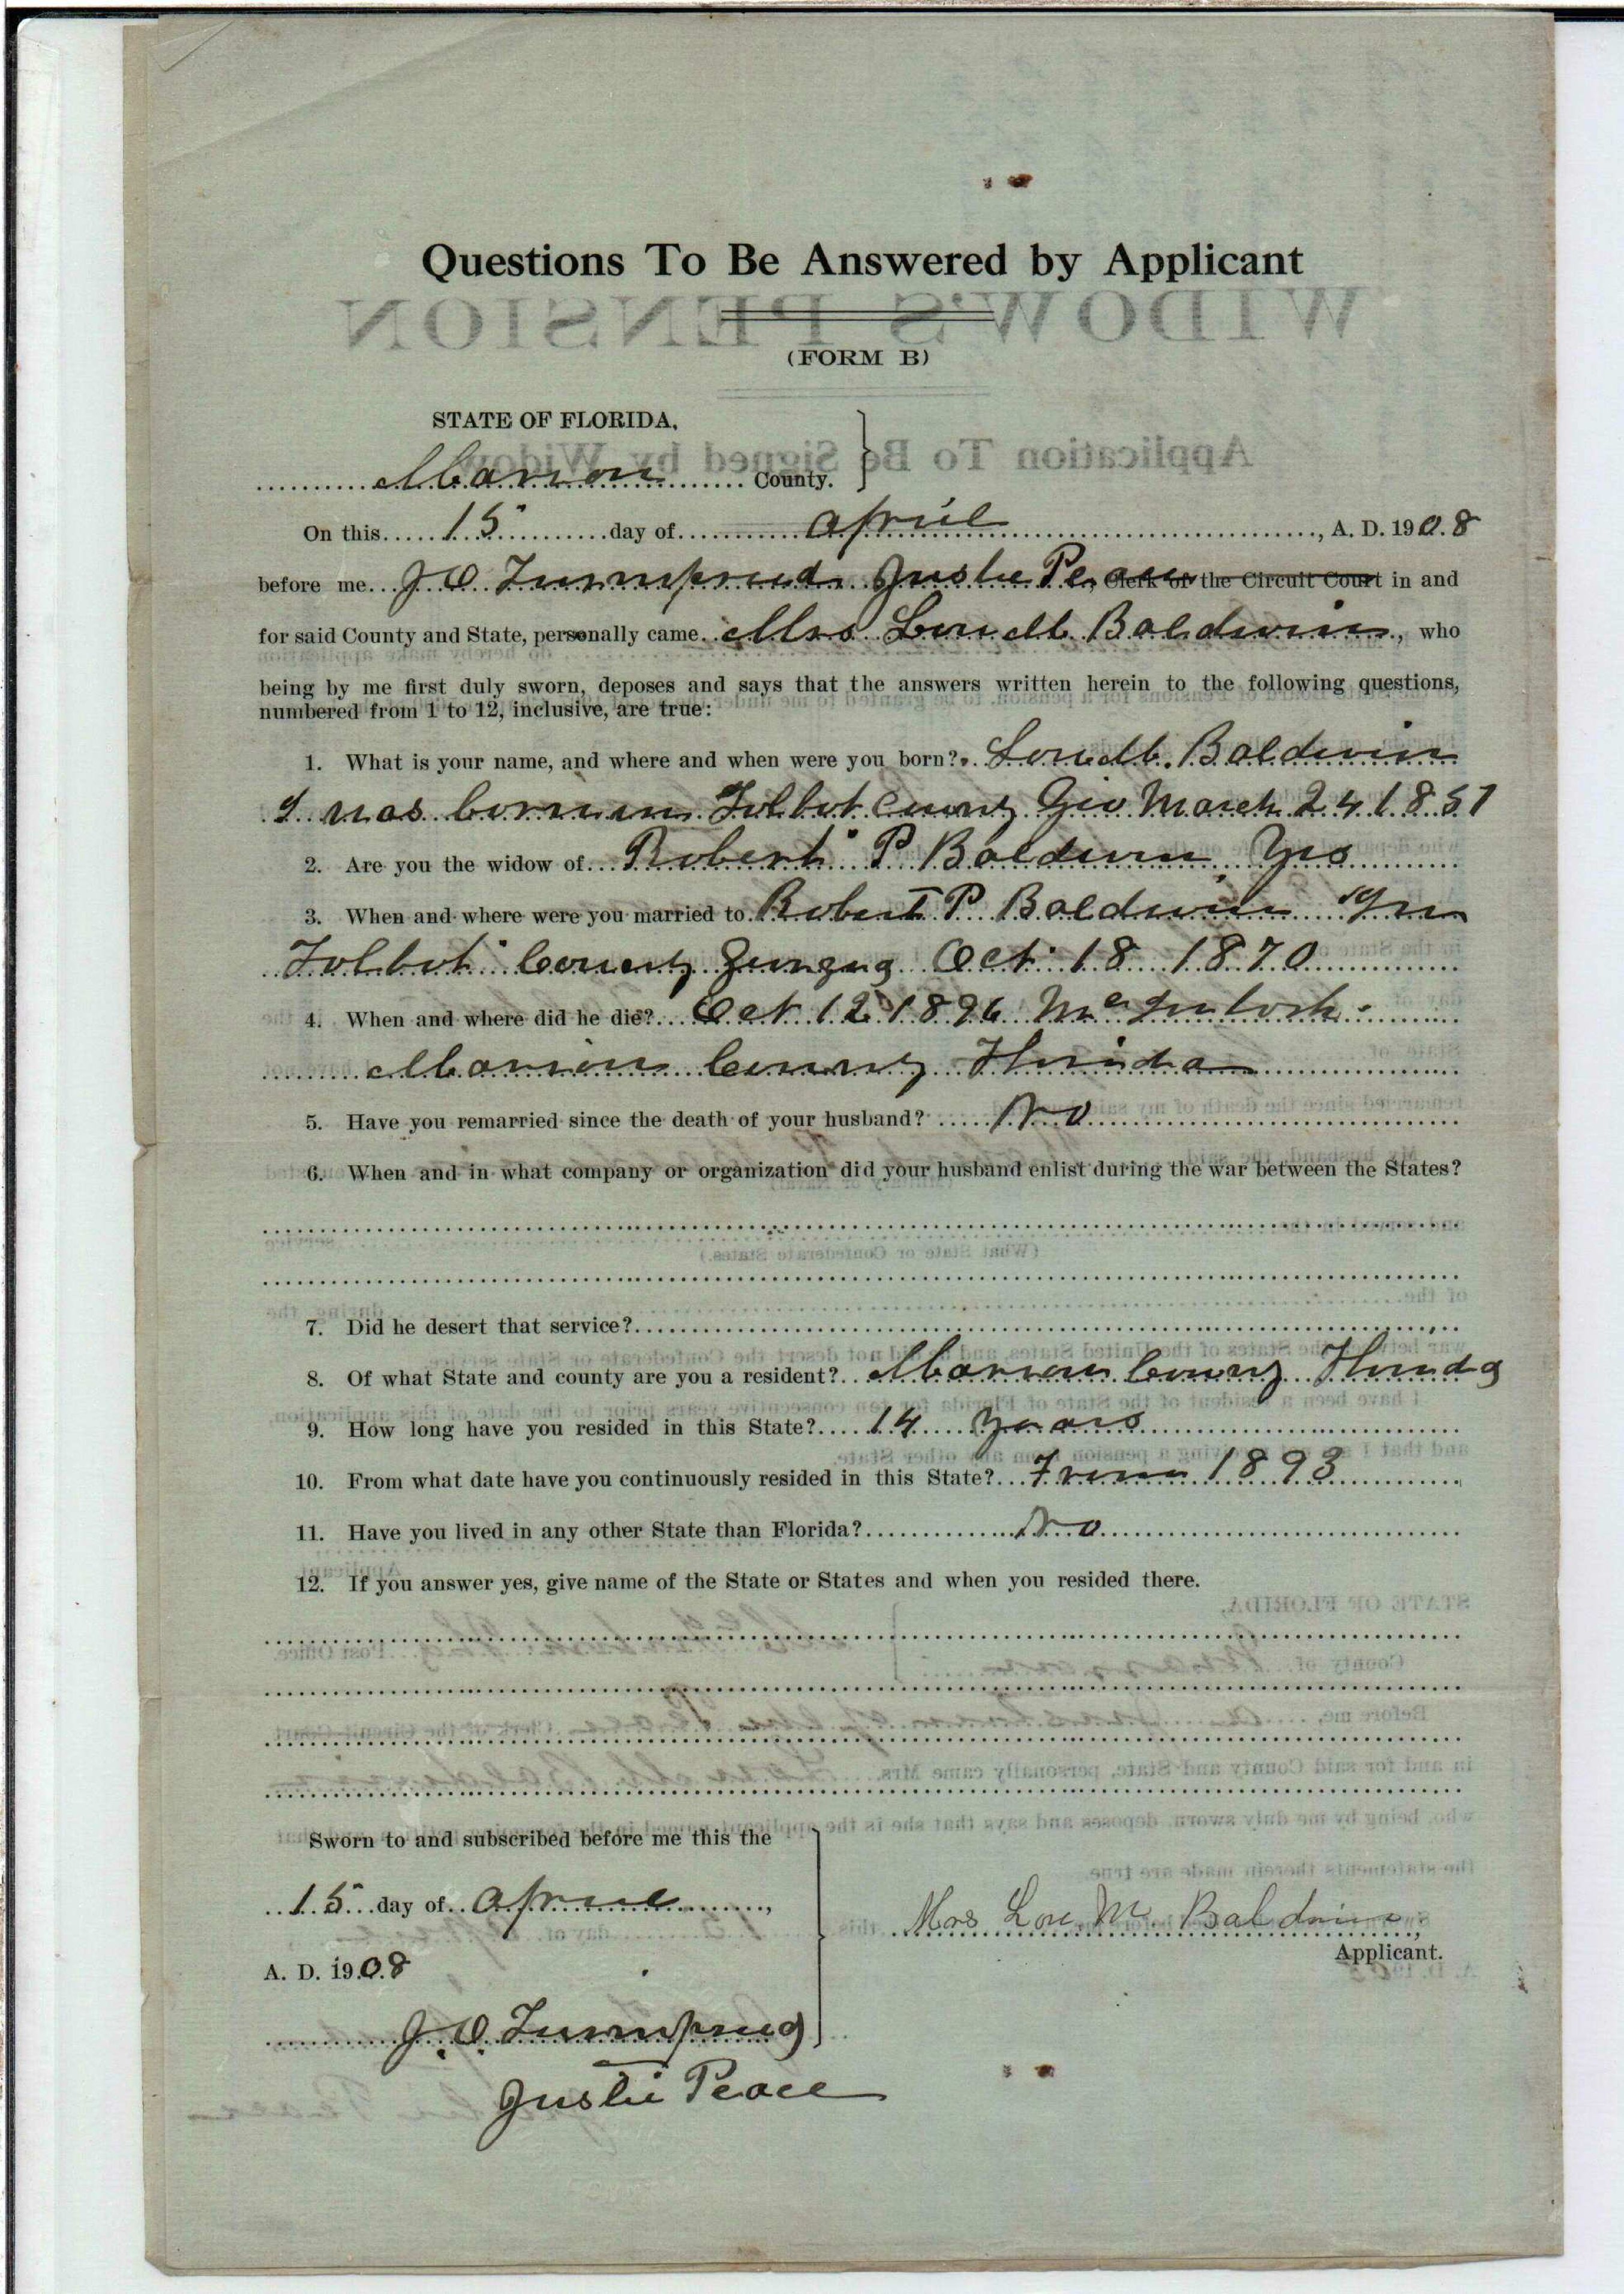 Questions To Be Answered by Applicant
WIDOW'S PENSION
(FORM B)
STATE OF FLORIDA,
Application To Be Signed by Widow
Marion County.
On this 15 day of April, A. D. 1908
before me J O Justie Peace, Clerk of the Circuit Court in and
for said County and State, personally came Mrs Lou M. Baldwin, who
being by me first duly sworn, deposes and says that the answers written herein to the following questions,
numbered from 1 to 12, inclusive, are true:
1. What is your name, and where and when were you born? Lou M. Baldwin
I was born in Tolbot County Geo March 24 1851
2. Are you the widow of Robert P Baldwin Yes
3. When and where were you married to Robert P Baldwin In
Tolbot County Oct 18 1870
4. When and where did he die? Oct 12 1896 McIntosh
Marion County Florida
5. Have you remarried since the death of your husband? No
6. When and in what company or organization did your husband enlist during the war between the States?
7. Did he desert that service?
8. Of what State and county are you a resident? Marion County Florida
9. How long have you resided in this State? 14 years
10. From what date have you continuously resided in this State? From 1893
11. Have you lived in any other State than Florida? No
12. If you answer yes, give name of the State or States and when you resided there.
Sworn to and subscribed before me this the
15 day of April,
Mrs. Lou. M. Baldwin,
Applicant.
A. D. 1908
J. O.
Justie Peace